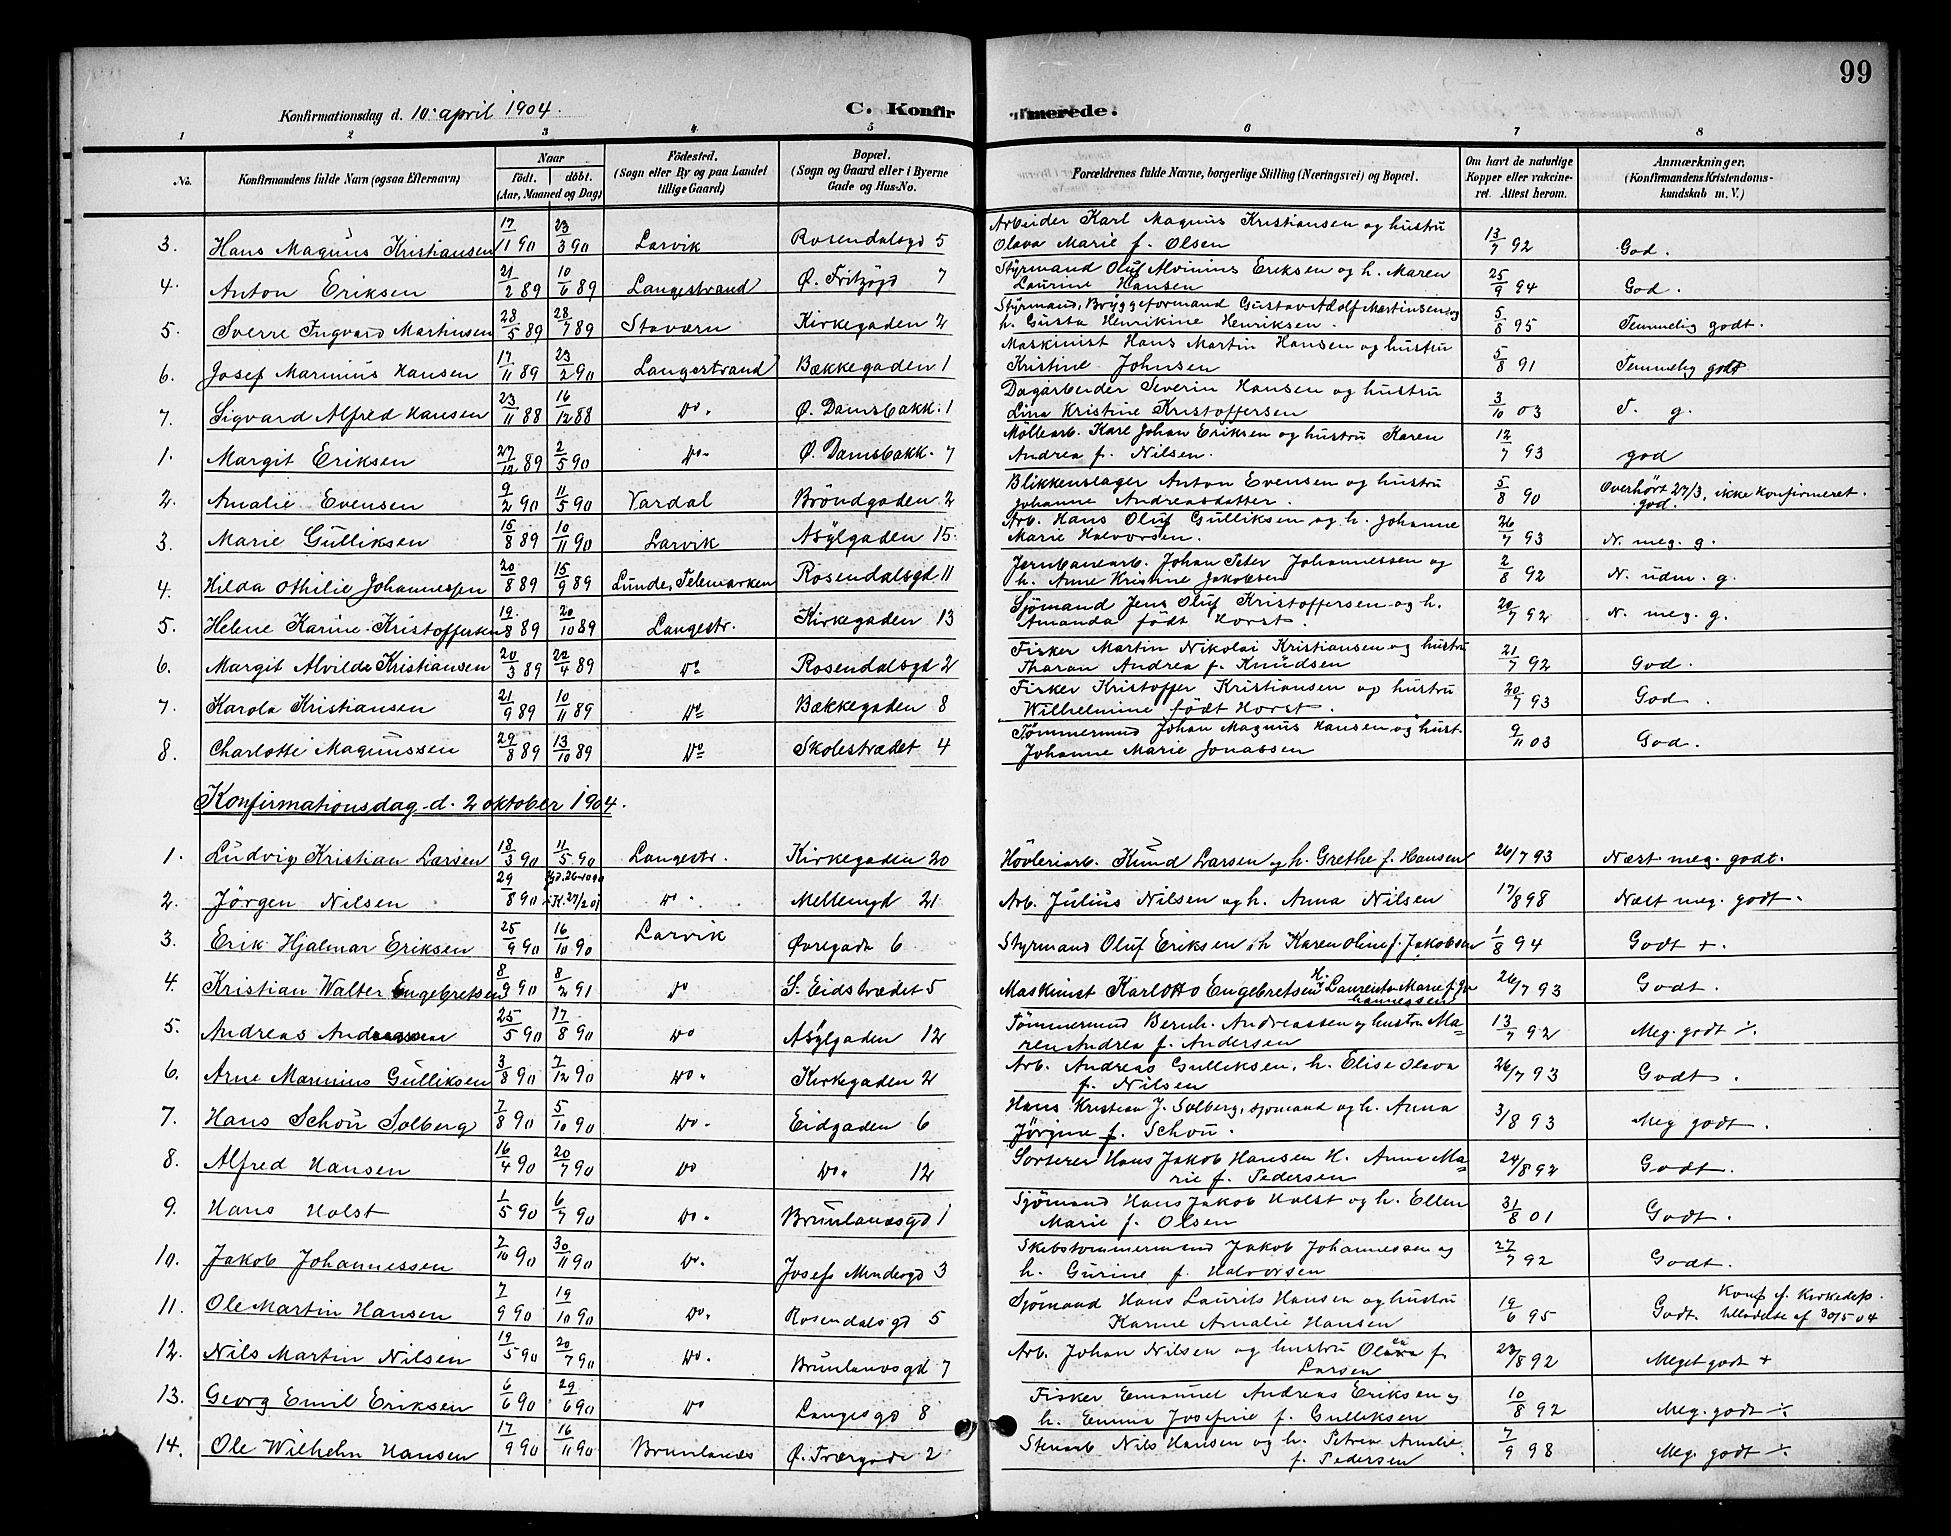 99
Konfirmationsdag d. 10. april 1904. C. Konfirmerede.
1 2 3 4 5 6 7 8
No. Konfirmandens fulde Navn (ogsaa Efternavn) Naar Födt. döbt. (Aar, Maaned og Dag) Födested. (Sogn eller By og paa Landet tillige Gaard) Bopæl. (Sogn og Gaard eller i Byerne Gade og Hus-No. Forældrenes fulde Navne, borgerlige Stilling (Næringsvei) og Bopæl. Om havt de naturlige Kopper eller vakcineret. Attest herom. Anmærkninger. (Konfirmandens Kristendomskundskab m. V.)
3. Hans Magnus Kristiansen 17/11 90 23/3 90 Larvik Rosendalsgd 5 Arbeider Karl Magnus Kristiansen og hustru
Olava Marie f. Olsen 13/7 92 God.
4. Anton Eriksen 21/2 89 10/6 89 Langestrand Ø. Fritzøgd 7 Styrmand Oluf Alvinius Eriksen og h. Maren
Laurine Hansen 25/9 94 God.
5. Sverre Ingvard Martinsen 28/5 89 28/7 89 Staværn Kirkegaden 2 Styrmand, Bryggeformand Gustav Adolf Martinsen og
h. Gusta Henrikine Henriksen. 5/8 95 Temmelig godt.
6. Josef Marinius Hansen 17/11 89 23/2 90 Langestrand Bækkegaden 1 Maskinist Hans Martin Hansen og hustru
Kristine Johnsen 5/8 91 Temmelig godt
7. Sigvard Alfred Hansen 23/11 88 16/12 88 Do. Ø. Damsbakk. 1 Dagarbeider Severin Hansen og hustru
Lina Kristine Kristoffersen 3/10 03 T. g.
1. Margit Eriksen 27/12 89 2/5 90 Do. Ø. Damsbakk. 7 Møllearb. Karl Johan Eriksen og hustru Karen
Andrea f. Nilsen. 12/7 93 god
2. Amalie Evensen 9/2 90 11/5 90 Vardal Bröndgaden 2 Blikkenslager Anton Evensen og hustru
Johanne Andreasdatter. 5/8 90 Overhørt 27/3, ikke konfirmeret.
god.
3. Marie Gulliksen 15/8 89 10/11 90 Larvik Asylgaden 15. Arb. Hans Oluf Gulliksen og h. Johanne
Marie Halvorsen. 26/7 93 N. meg. g.
4. Hilda Othilie Johannessen 20/8 89 15/9 89 Lunde, Telemarken Rosendalsgd 11 Jernbanearb. Johan Peter Johannessen og
h. Anne Kristine Jakobsen 2/8 92 N. udm. g.
5. Helene Karine Kristoffersen 19/8 89 20/10 89 Langestr. Kirkegaden 13 Sjömand Jens Oluf Kristoffersen og h.
Amanda født Horst. 20/7 92 N. meg. g.
6. Margit Alvilde Kristiansen 20/3 89 22/4 89 Do Rosendalsgd 2 Fisker Martin Nikolai Kristiansen og hustru
Tharan Andrea f. Knudsen 21/7 92 God.
7. Karola Kristiansen 21/9 89 10/11 89 Do Bækkegaden 8 Fisker Kristoffer Kristiansen og hustru
Wilhelmine født Horst. 20/7 93 God.
8. Charlotte Magnussen 29/8 89 13/10 89 Do Skolestrædet 4 Tömmermand Johan Magnus Hansen og hust.
Johanne Marie Jonassen 9/11 03 God.
Konfirmationsdag d. 2 oktober 1904.
1. Ludvig Kristian Larsen 18/3 90 11/5 90 Langestr. Kirkegaden 20 Høvleriarb. Knud Larsen og h. Grethe f. Hansen 26/7 93 Næst meg. godt.
2. Jörgen Nilsen 29/8 90 26-10 90 K. 27/2 01 Do. Mellemgd 21 Arb. Julius Nilsen og h. Anna Nilsen 17/8 98 Næst meg. godt.
3. Erik Hjalmar Eriksen 25/9 90 16/10 90 Larvik Øvregade 6 Styrmand Oluf Eriksen, h Karen Oline f. Jakobsen 1/8 94 Godt +.
4. Kristian Walter Engebretsen 8/9 90 8/2 91 Do S. Eidstrædet 5 Maskinist Karl Otto Engebretsen, H. Laurentse Marie f. Johannessen 26/7 93 Godt.
5. Andreas Andreassen 25/5 90 17/8 90 Do Asylgaden 12 Tömmermand Bernh. Andreassen og hustru Ma-
ren Andrea f. Andersen 13/7 92 Meg. godt ÷.
6. Arne Marinius Gulliksen 3/8 90 7/12 90 Do. Kirkegaden 2 Arb. Andreas Gulliksen, h. Elise Olava
f. Nilsen 26/7 93 Godt.
7. Hans Schou Solberg 7/8 90 5/10 90 Do. Eidgaden 6 Hans Kristian J. Solberg, sjömand og h. Anna
Jörgine f. Schou. 3/8 93 Meg godt.
8. Alfred Hansen 16/4 90 20/7 90 Do Do. 12 Sorterer Hans Jakob Hansen H. Anna Ma-
rie f. Pedersen 24/8 92 Godt.
9. Hans Holst 1/5 90 6/7 90 Do. Brunlanæsgd 1 Sjömand Hans Jakob Holst og h. Ellen
Marie f. Olsen 31/8 01 Godt.
10. Jakob Johannessen 7/10 90 30/11 90 Do. Josefs Mindesgd 3 Skibstømmermand Jakob Johannessen og
h. Gurine f. Halvorsen 27/7 92 Godt.
11. Ole Martin Hansen 7/9 90 19/10 90 Do. Rosendalsgd 5 Sjömand Hans Laurits Hansen og hustru
Karine Amalie Hansen 19/6 95 Godt. Konf. f. Kirkedep.
tilladelse af 30/5 04
12. Nils Martin Nilsen 19/5 90 20/7 90 Do. Brunlanæsgd 7 Arb. Johan Nilsen og hustru f.
Larsen 23/8 92 Meget godt +
13. Georg Emil Eriksen 6/6 90 29/6 90 Do Langesgd 8 Fisker Emanuel Andreas Eriksen og
h. Emma Josefine f. Gulliksen 10/8 92 Meg. godt ÷.
14. Ole Wilhelm Hansen 17/9 90 16/11 90 Brunlanæs Ø. Tværgade 2 Stenarb Nils Hansen og h. Petrea Amalie
f. Pedersen 7/9 98 Meg. godt ÷.